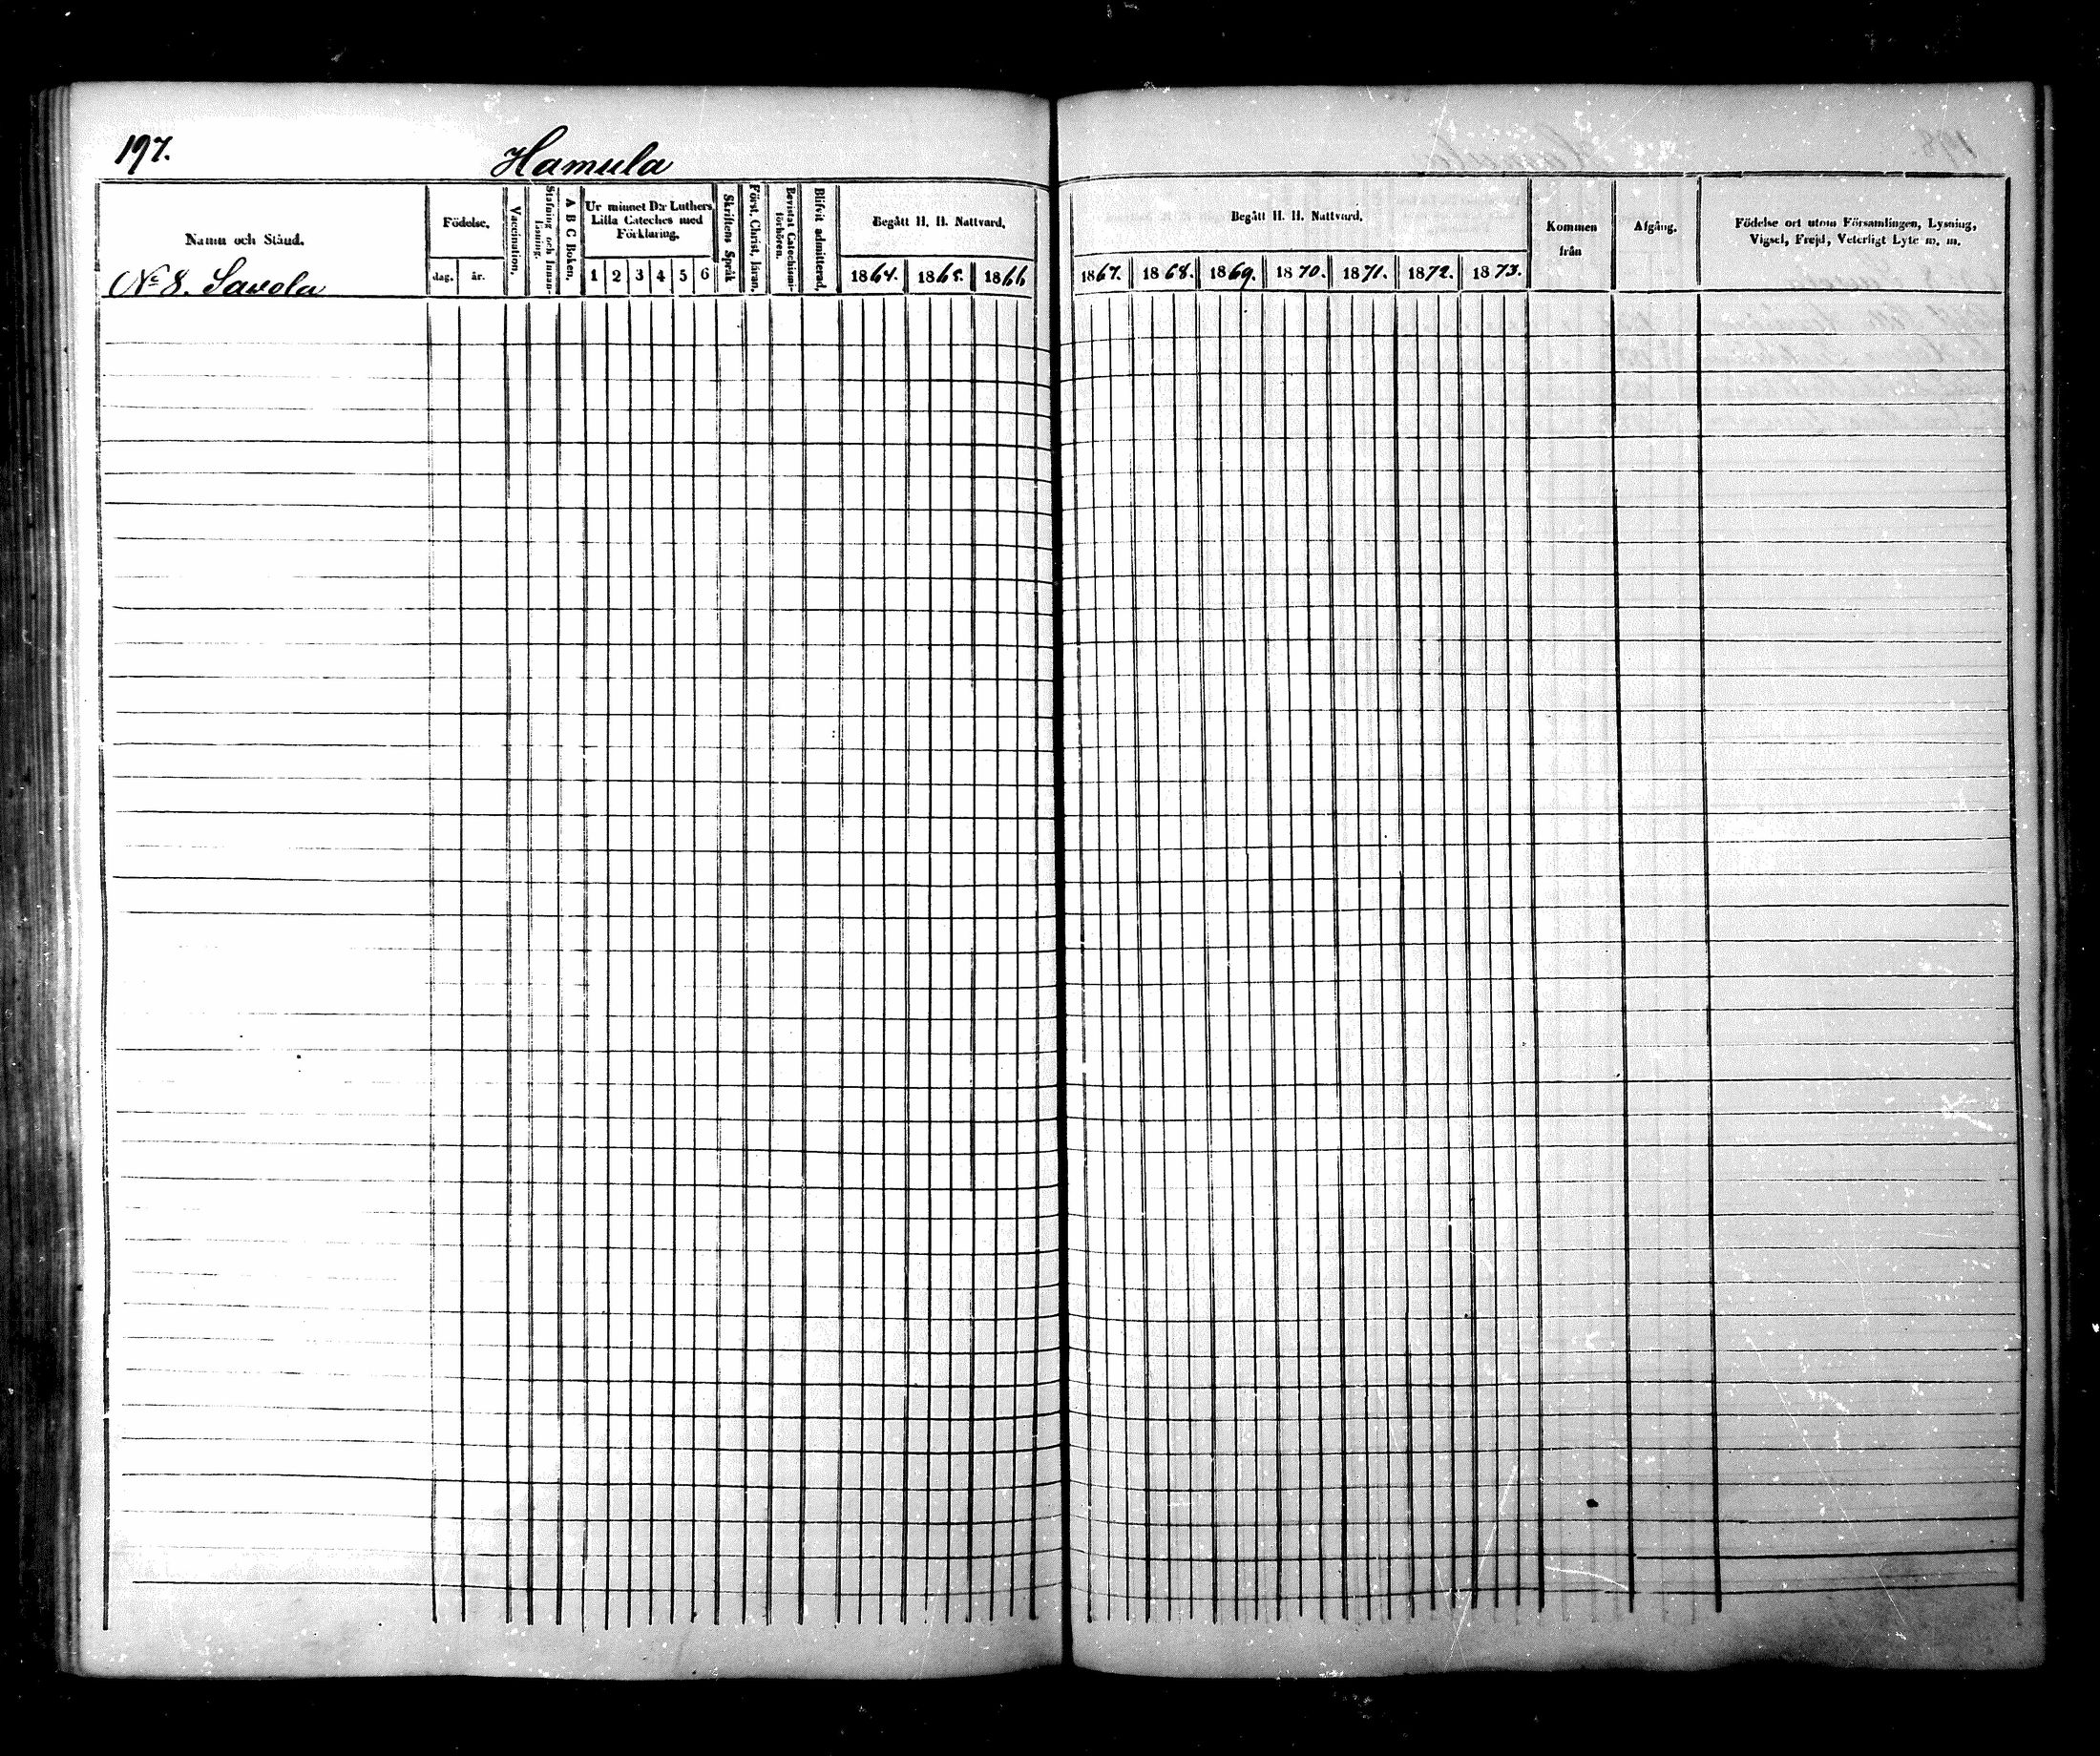 197.
Hamula
Namn och Stånd.
Födelse.
dag. år.
Vaccination.
Stafning och Innan-
läsning.
A B C Boken.
Ur minnet D:r Luthers
Lilla Cateches med
Förklaring.
1 2 3 4 5 6
Skriftens Språk
Först. Christ. läran.
Bevistat Catechismi-
förhören.
Blifvit admitterad,
Begått H. H. Nattvard,
1864. 1865. 1866
No 8. Savola
Begått H. H. Nattvard,
1867. 1868. 1869. 1870. 1871. 1872. 1873.
Kommen
från
Afgång.
Födelse ort utom Församlingen, Lysning,
Vigsel, Frejd, Veterligt Lyte m. m.